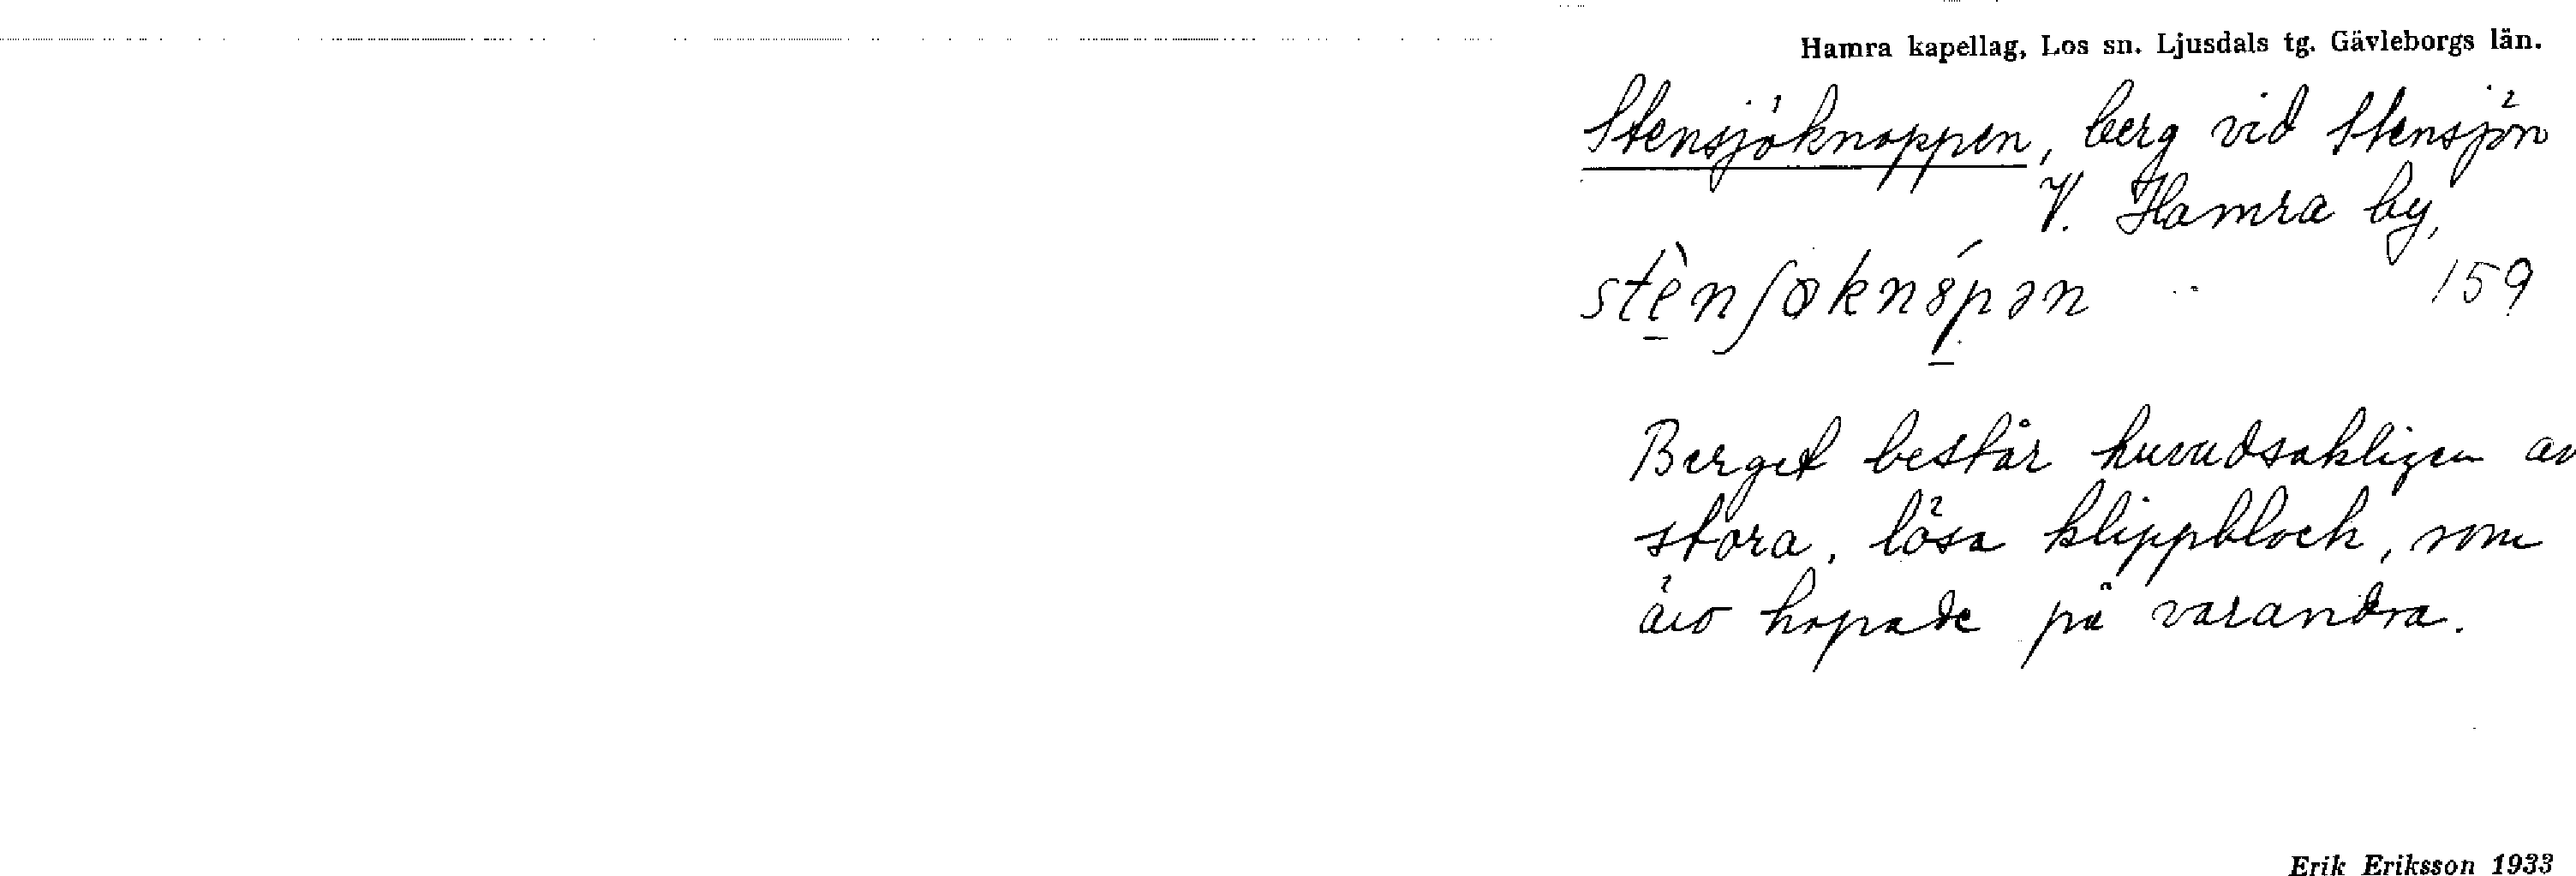 Hamra kapellag, Los sn. Ljusdals tg. Gävleborgs län.
Stensjöknoppen, berg vid Stensjön
V. Hamra by,
stè̱nʃøknó̱pən 159
Berget består huvudsakligen av
stora, lösa klippblock, som
äro hopade på varandra.
Erik Eriksson 1933